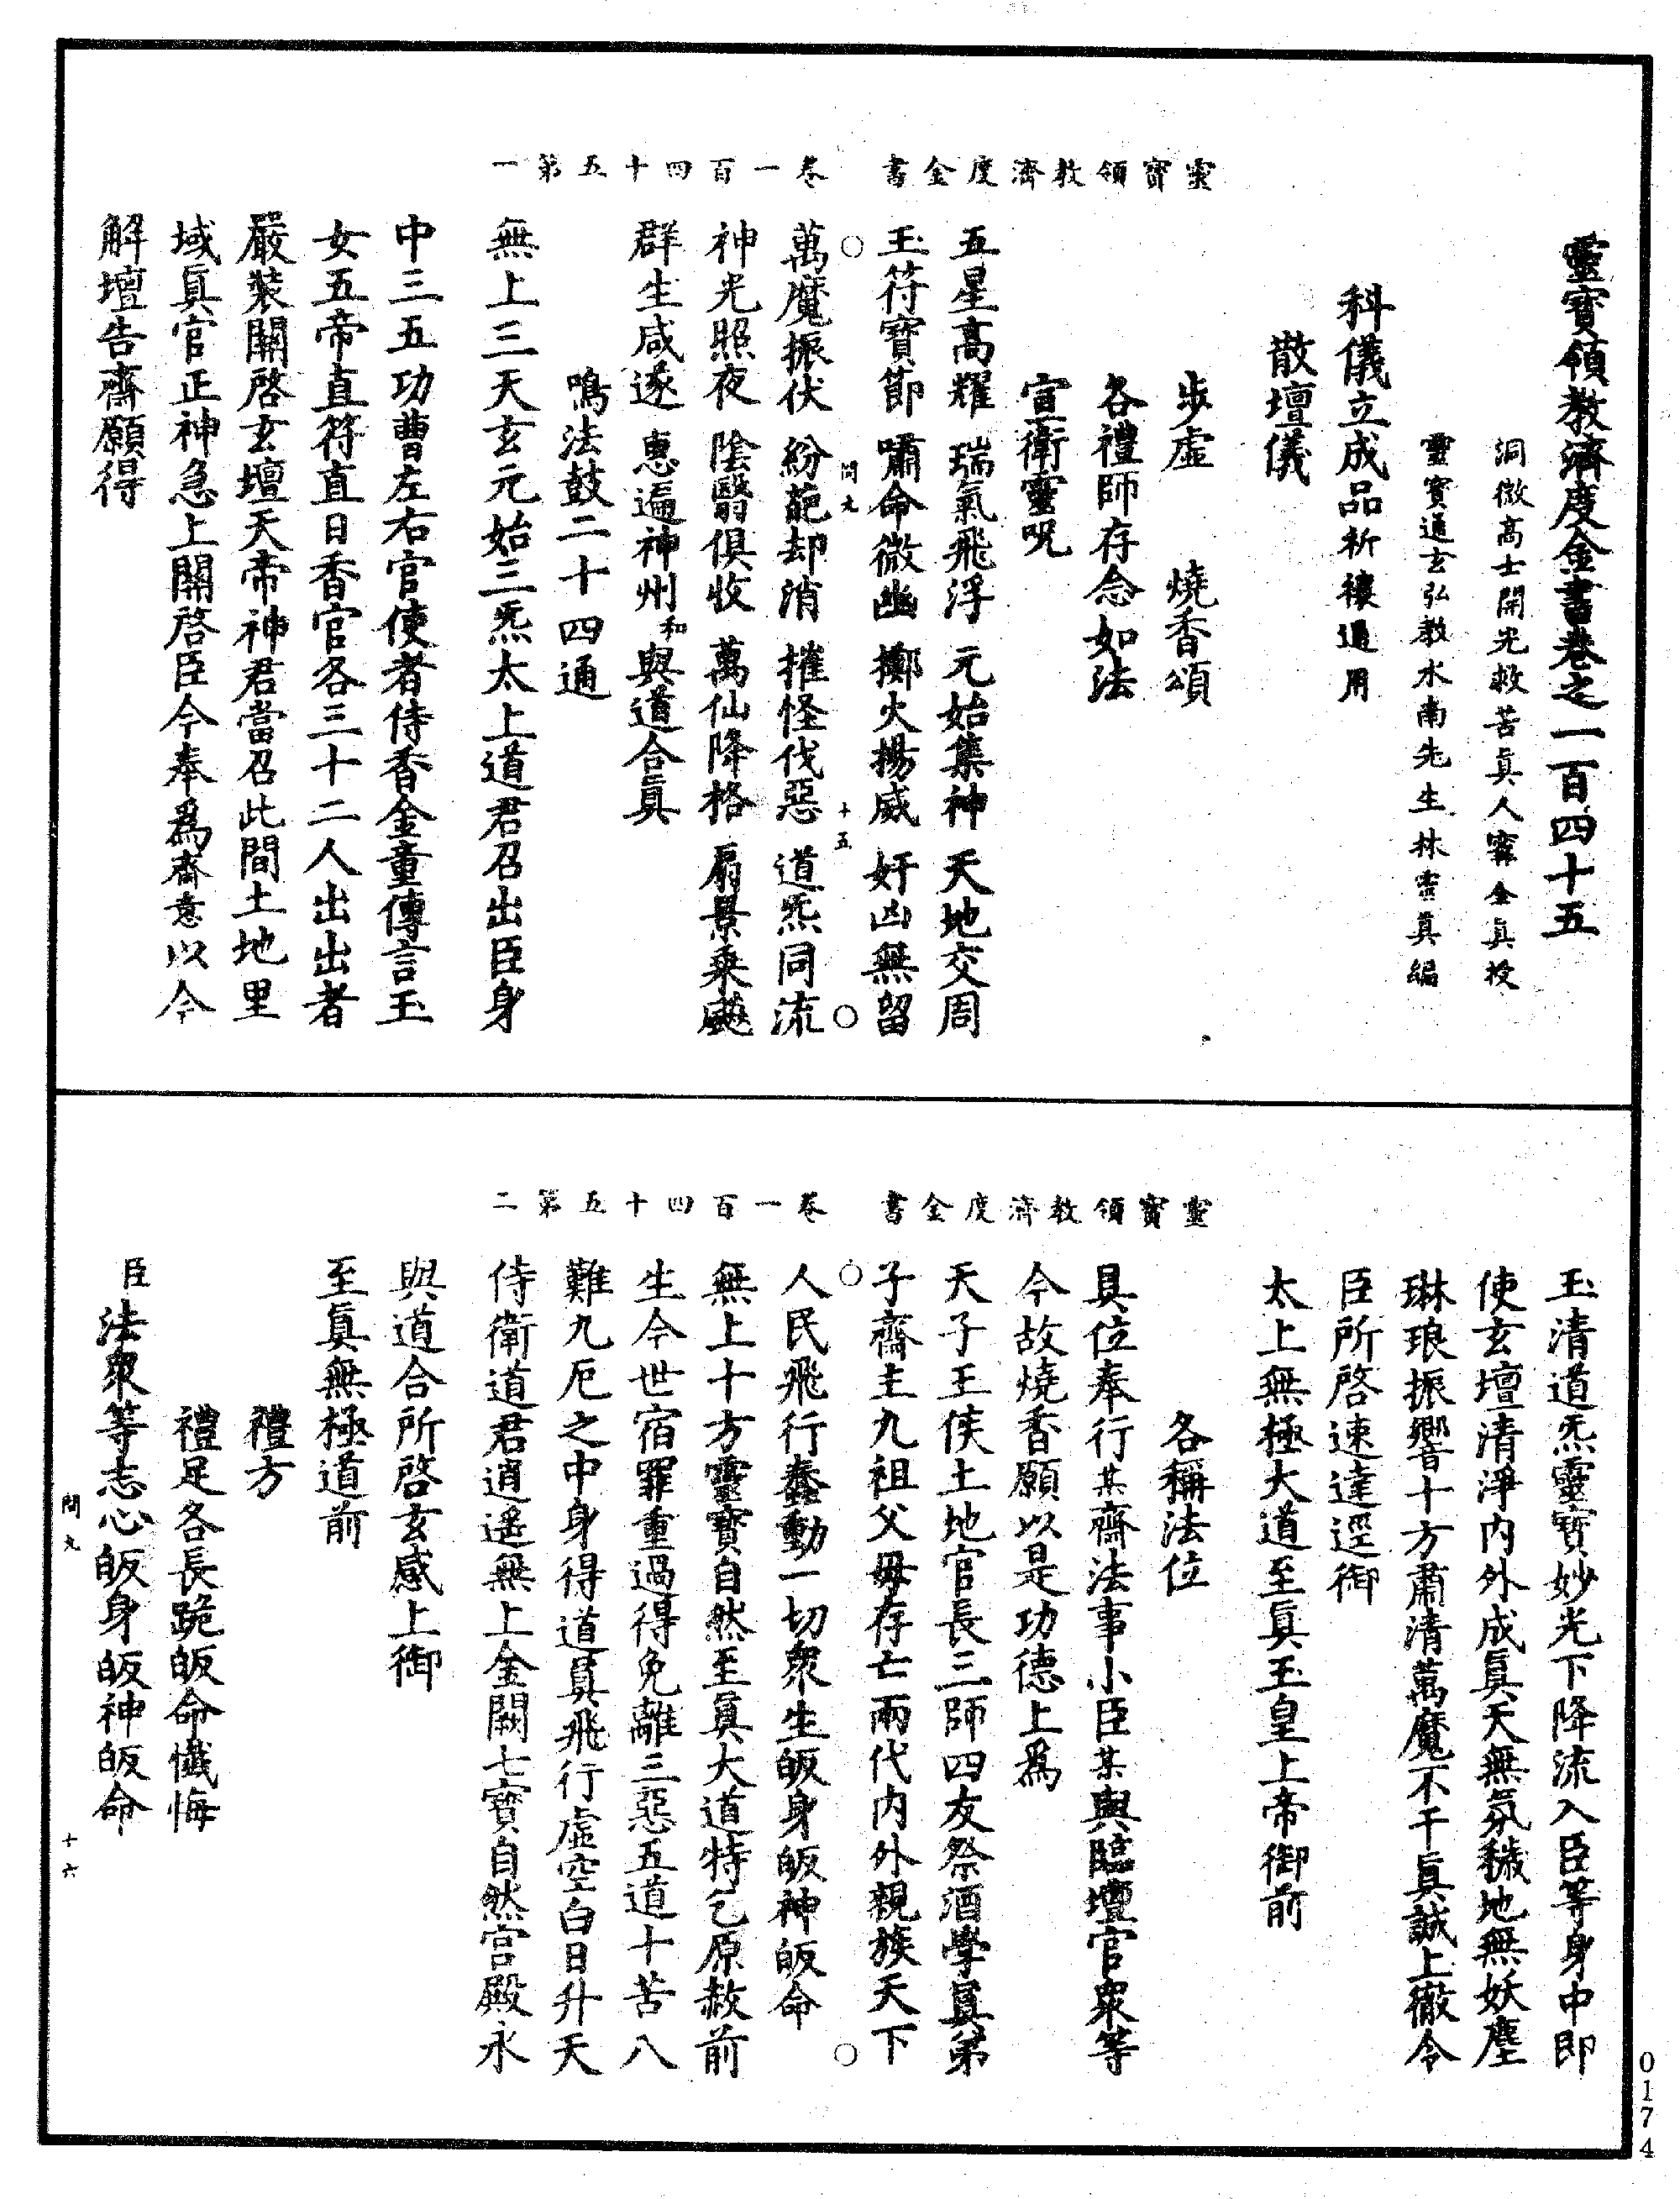 靈寶領教濟度金書卷之一百四十五
洞微高士開光救苦眞人甯全眞授
靈寶通玄弘教水南先生林靈眞編
科儀立成品祈禳通用
散壇儀
步虛 燒香頌
各禮師存念如法
宣衛靈呪
五星高耀 瑞氣飛浮 元始集神 天地交周
玉符寶節 嘯命徵幽 擲火揚威 奸凶無留
萬魔振伏 紛葩却消 摧怪伐惡 道炁同流
神光照夜 陰翳俱收 萬仙降格 扇景乘飈
群生咸遂 惠遍神州和與道合眞
鳴法鼓二十四通
無上三天玄元始三炁太上道君召出臣身
中三五功曹左右官使者侍香金童傳言玉
女五帝直符直日香官各三十二人出出者
嚴裝關啓玄壇天帝神君當召此間土地里
域眞官正神急上關啓臣今奉爲齋意以今
解壇告齋願得
靈寶領教濟度金書 卷一百四十五第一
問九 十五
玉清道炁靈寶妙光下降流入臣等身中即
使玄壇清淨内外成眞天無氛穢地無妖塵
琳琅振響十方肅清萬魔不干眞誠上徹令
臣所啓速達逕御
太上無極大道至眞玉皇上帝御前
各稱法位
具位奉行某齋法事小臣某與臨壇官衆等
今故燒香願以是功德上爲
天子王侯土地官長三師四友祭酒學眞弟
子齋主九祖父母存亡兩代内外親族天下
人民飛行蠢動一切衆生皈身皈神皈命
無上十方靈寶自然至眞大道特乞原赦前
生今世宿罪重過得免離三惡五道十苦八
難九厄之中身得道眞飛行虛空白日升天
侍衛道君逍遥無上金闕七寶自然宫殿永
與道合所啓玄感上御
至眞無極道前
禮方
禮足各長跪皈命懺悔
臣法衆等志心皈身皈神皈命
靈寶領教濟度金書 卷一百四十五第二
問九 十六
0174